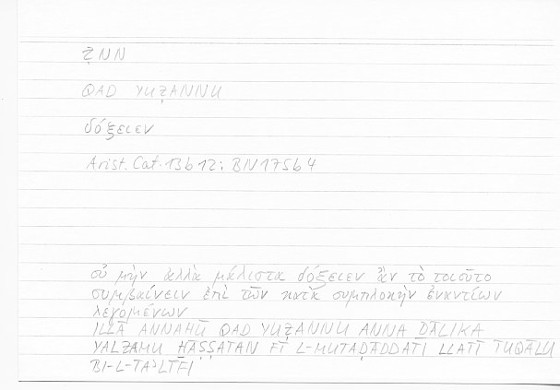 ẒNN
QAD YUẒANNU
δόξειεν
Arist. Cat. 13b12; BN175b4
οὐ μὴν ἀλλὰ μάλιστα δόξειεν ἂν τὸ τοιοῦτο
συμβαίνειν ἐπὶ τῶν κατὰ συμπλοκὴν ἐναντίων
λεγομένων
ILLĀ ANNAHŪ QAD YUẒANNU ANNA ḎĀLIKA
YALZAMU ḪĀṢṢATAN FĪ L-MUTAḌĀDDĀTI LLATĪ TUQĀLU
BI-L-TAʾLĪFI